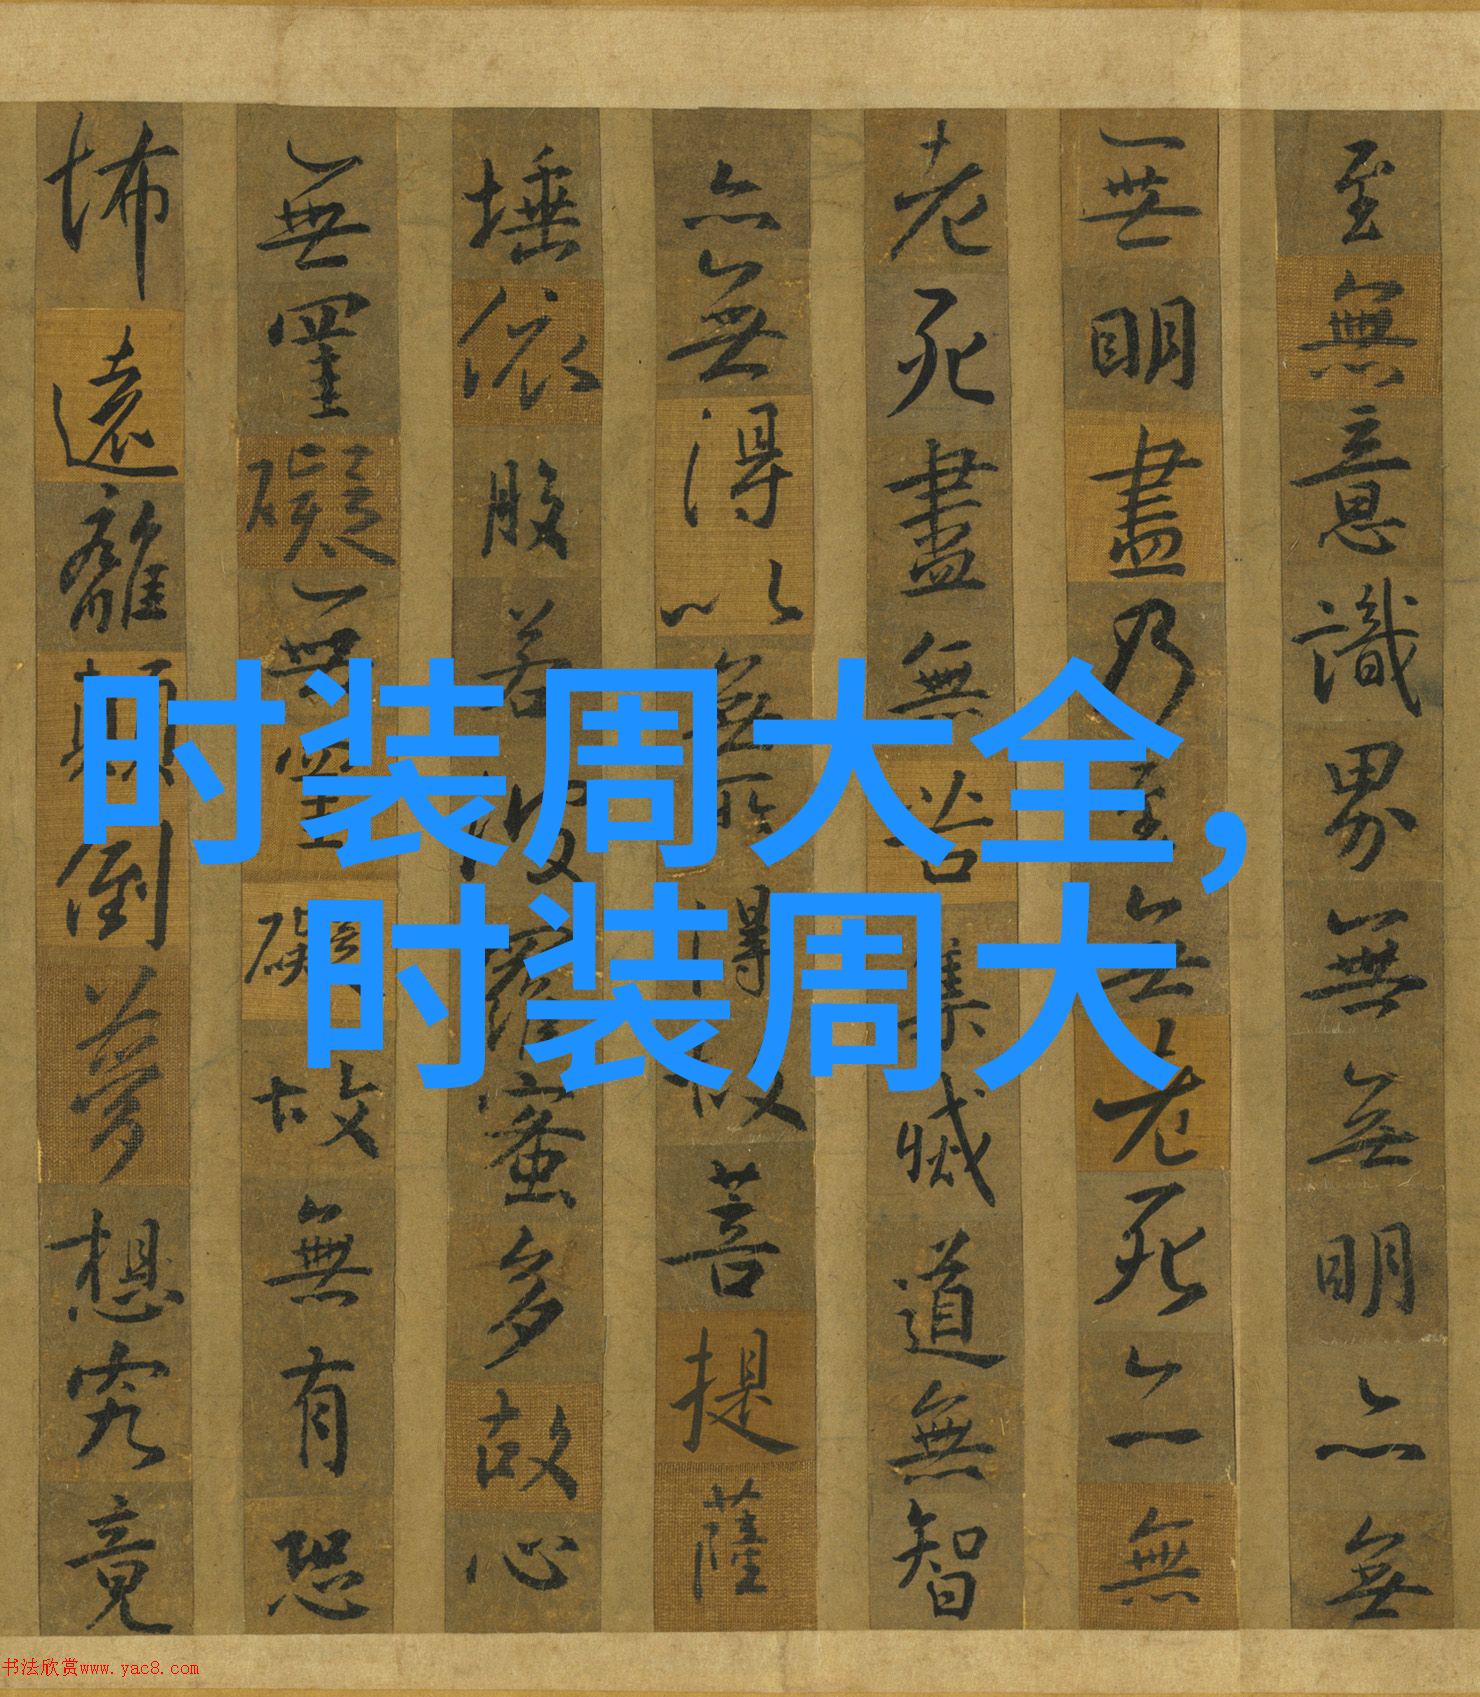 至無意識界無無明亦無
無明盡乃至無老死亦無
老死盡無苦集滅道無智
亦無得以無所得故菩提薩
埵依般若波羅蜜多故心
無罣礙無罣礙故無有恐
怖遠離顛倒夢想究竟
时装周大全，
时装周大
书法欣赏www.yac8.com